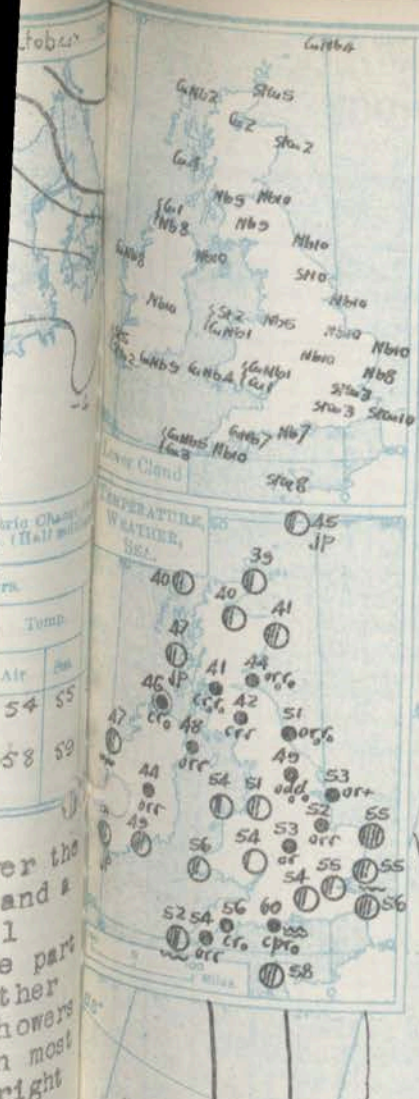 ctober
CuNb4
CuNb2
StCu5
Cu2
StCu2
Cu4
Nb5 Nb10
{Cu1
Nb8
Nb9
Nb10
CuNb8
Nb10
St10
Nb10
Nb10
{St2
CuNb1
Nb6
Nb10
Nb10
Nb10
CuNb9
CuNb4
{CuNb1
Cu1
Nb8
StCu3
StCu3
StCu10
{CuNb5
Cu3
Nb10
CuNb7
Nb7
Lower Cloud
StCu8
TEMPERATURE,
WEATHER,
SEA.
45
JP
39
40
40
41
47
JP
41
crr
44
orr
46
cro
42
crr
48
orr
51
orr
47
49
44
orr
54
51
53
or+
52
orr
55
49
56
54
53
or
55
54
55
56
52
54
orr
56
cr
60
cpr
58
Miles.
ric Chang
(Half
rs.
Temp.
Air
Sea
54 55
58 59
er the
and a
l
e part
ther
howers
n most
right